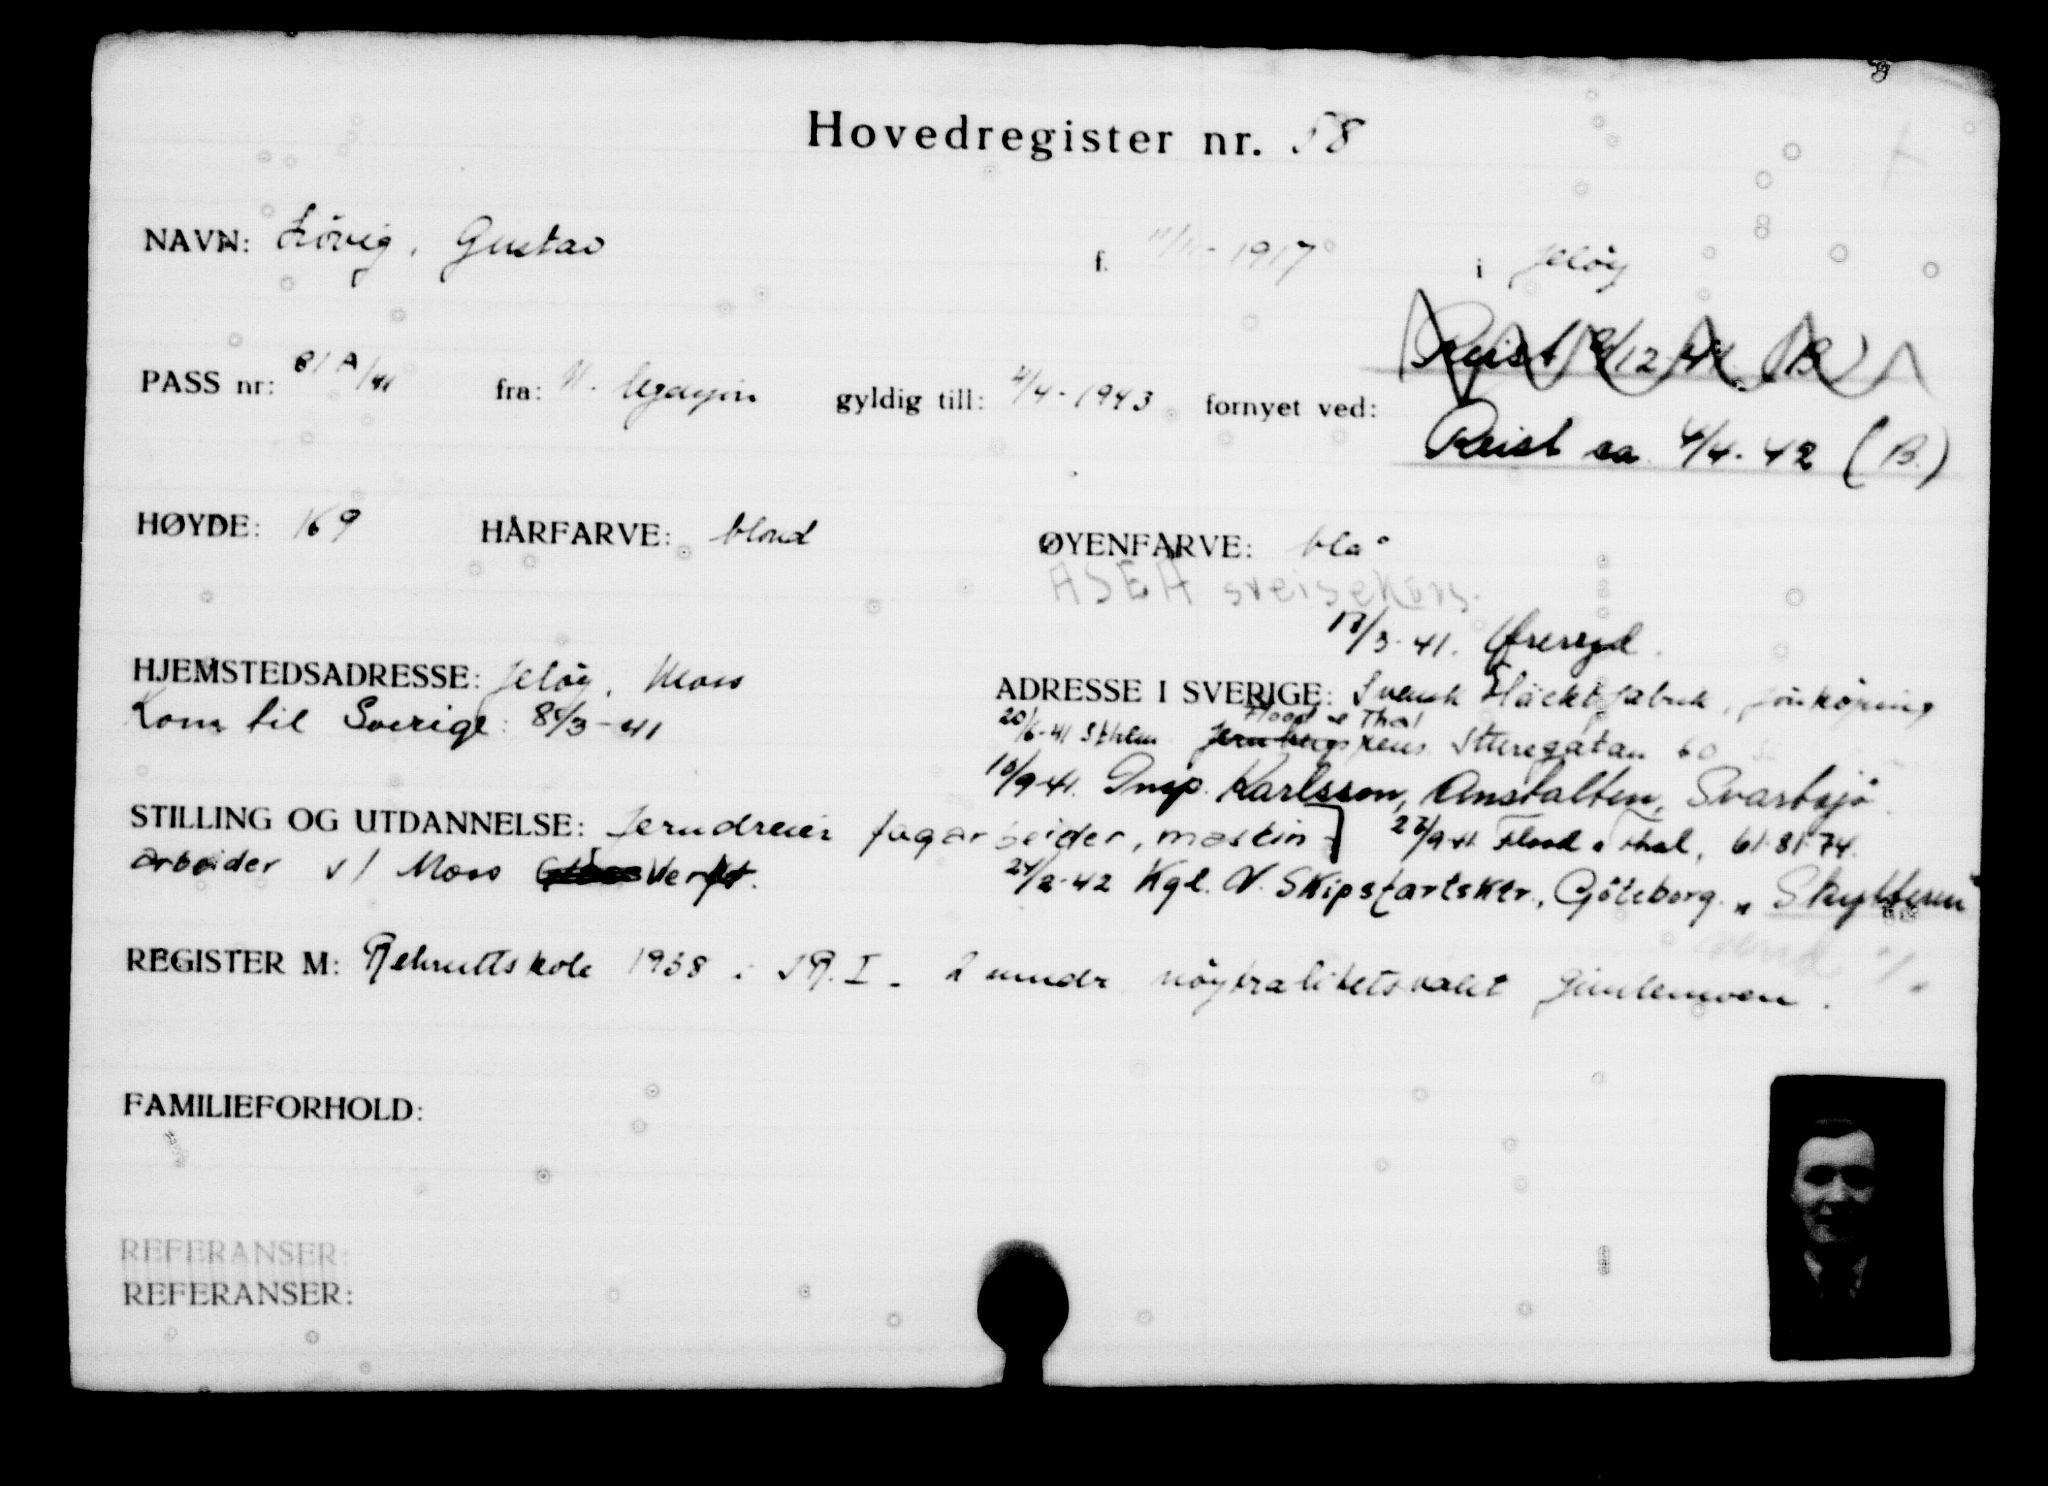 Hovedregister nr. 58
NAVN: Lövig, Gustav f. 11/11-1917 i Jelöy
Reist 8/12-41 (B)
PASS nr: 81 A/41 fra: N. legasjon gyldig till: 4/4-1943 fornyet ved:
Reist sa. 4/4-42 (B.)
HØYDE: 169 HÅRFARVE: blond ØYENFARVE: blå
ASEA sveisekurs.
17/3-41. Öreryd.
HJEMSTEDSADRESSE: Jelöy, Moss ADRESSE I SVERIGE: Svensk Fläktfabrik, Jönköping
Kom til Sverige: 8/3-41
Flood & Thal
20/6-41 Sthlm Jernbergs Rens. Sturegatan 60
10/9-41. Insp. Karlsson, Anstalten, Svartsjö.
STILLING OG UTDANNELSE: Jerndreier fagarbeider, maskin- 23/9-41 Flood & Thal, 61.81.74.
arbeider v/ Moss Verft. 24/2-42 Kgl. N. Skipsfartsktr., Göteborg. "Skytteren"
REGISTER M: Rekruttskole 1938 i IR. I. 2 mndr nöytralitetsvakt Gimlemoen.
FAMILIEFORHOLD:
REFERANSER:
REFERANSER: